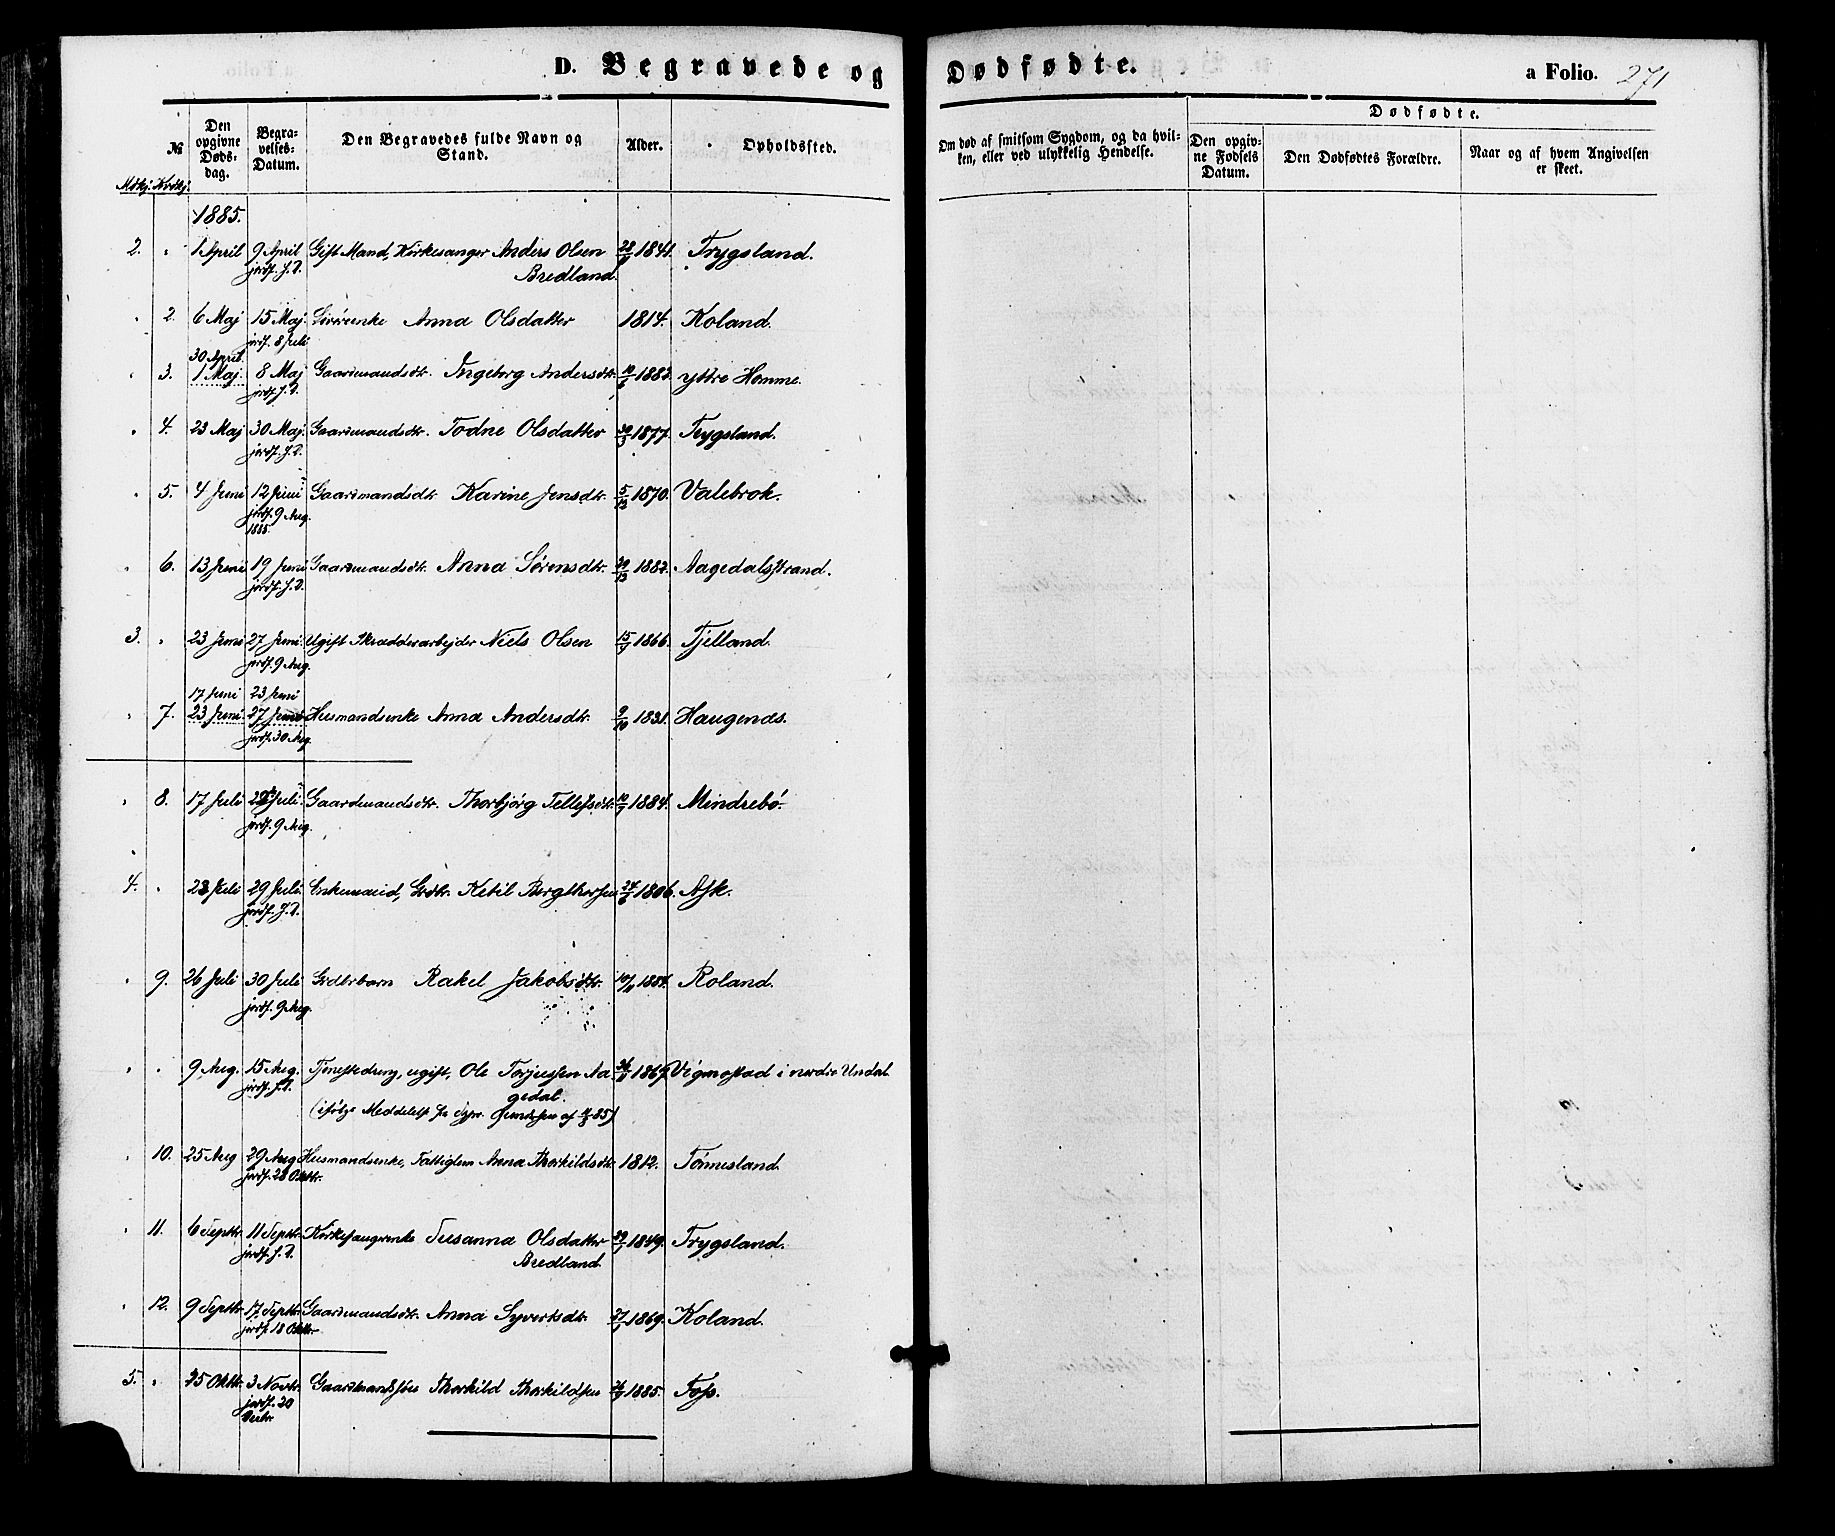 D. Begravede og Dødfødte.
a Folio. 271
Mdkj. Kvdkj. №
Den opgivne Døds-dag.
Begra-velses-Datum.
Den Begravedes fulde Navn og Stand.
Alder.
Opholdssted.
Om død af smitsom Sygdom, og da hvil-ken, eller ved ulykkelig Hendelse.
Dødfødte.
Den opgiv-ne Fødsels Datum.
Den Dødfødtes Forældre.
Naar og af hvem Angivelsen er skeet.
1885.
2. " 1 April 9 April Gift Mand, Kirkesanger Anders Olsen 1841. Trygsland.
jordf. S. D. Bredland.
" 2. 6 Maj 15 Maj. Anna Olsdatter 1814. Koland.
jordf. 8 Juli
30 April
" 3. 1 Maj. 8 Maj Gaardmandsdtr. Ingeborg Andersdtr. 1883. yttre Homme.
jordf. S. D.
" 4. 23 Maj 30 Maj. Gaardmandsdtr. Todne Olsdatter 30/3 1877. Trygsland.
jordf. S. D.
" 5. 4 Juni 12 Juni Gaardmandsdtr Karine Jensdtr. 5/12 1870. Valebrok.
jordf. 9 Aug.
1885.
" 6. 13 Juni 19 Juni Gaardmandsdtr. Anna Sørensdtr. 1882. Aagedalsstrand.
jordf. S. D.
3. " 23 Juni 27 Juni. Ugift Skrædderarbejder Niels Olsen 1866. Tjelland.
jordf. 9 Aug.
17 Juni 23 Juni
" 7. 23 Juni 27 Juni Husmandsenke Anna Andersdtr. 9/10 1831. Haugenæs.
jordf. 30 Aug.
" 8. 17 Juli Juli. Gaardmandsdtr. Thorbjørg Tellefsdtr. 1884. Mindrebö.
jordf. 9 Aug.
4. " 23 Juli 29 Juli. Enkemand, Grdbr. Ketil Bergthorsen 1806. Ask.
jordf. S. D.
" 9. 26 Juli 30 Juli Grdbrbarn Rakel Jakobsdtr. 1884. Roland.
jordf. 9 Aug.
" " 9 Aug. 15 Aug. Tjenestedreng, ugift, Ole Torjussen Aa- 1867. Vigmostad i nordre Undal.
jordf. S. D. gedal.
(ifölge Meddelelse fra af 85)
" 10. 25 Aug 29 Aug Husmandsenke, Fattiglem Anna Thorkildsdtr. 1812. Tönnesland.
jordf. 28 Oktbr.
" 11. 6 Septbr. 11 Septbr. Kirkesangrenke Susanna Olsdatter 1849. Trygsland.
jordf. S. D. Bredland.
" 12. 9 Septbr. 17 Septbr. Gaardmandsdtr. Anna Syvertsdtr. 1869. Koland.
jordf. 18 Oktbr.
5. " 25 Oktbr. 3 Novbr. Gaardmandssön Thorkild Thorkildsen 1885. Foss.
jordf. 20
Decbr.